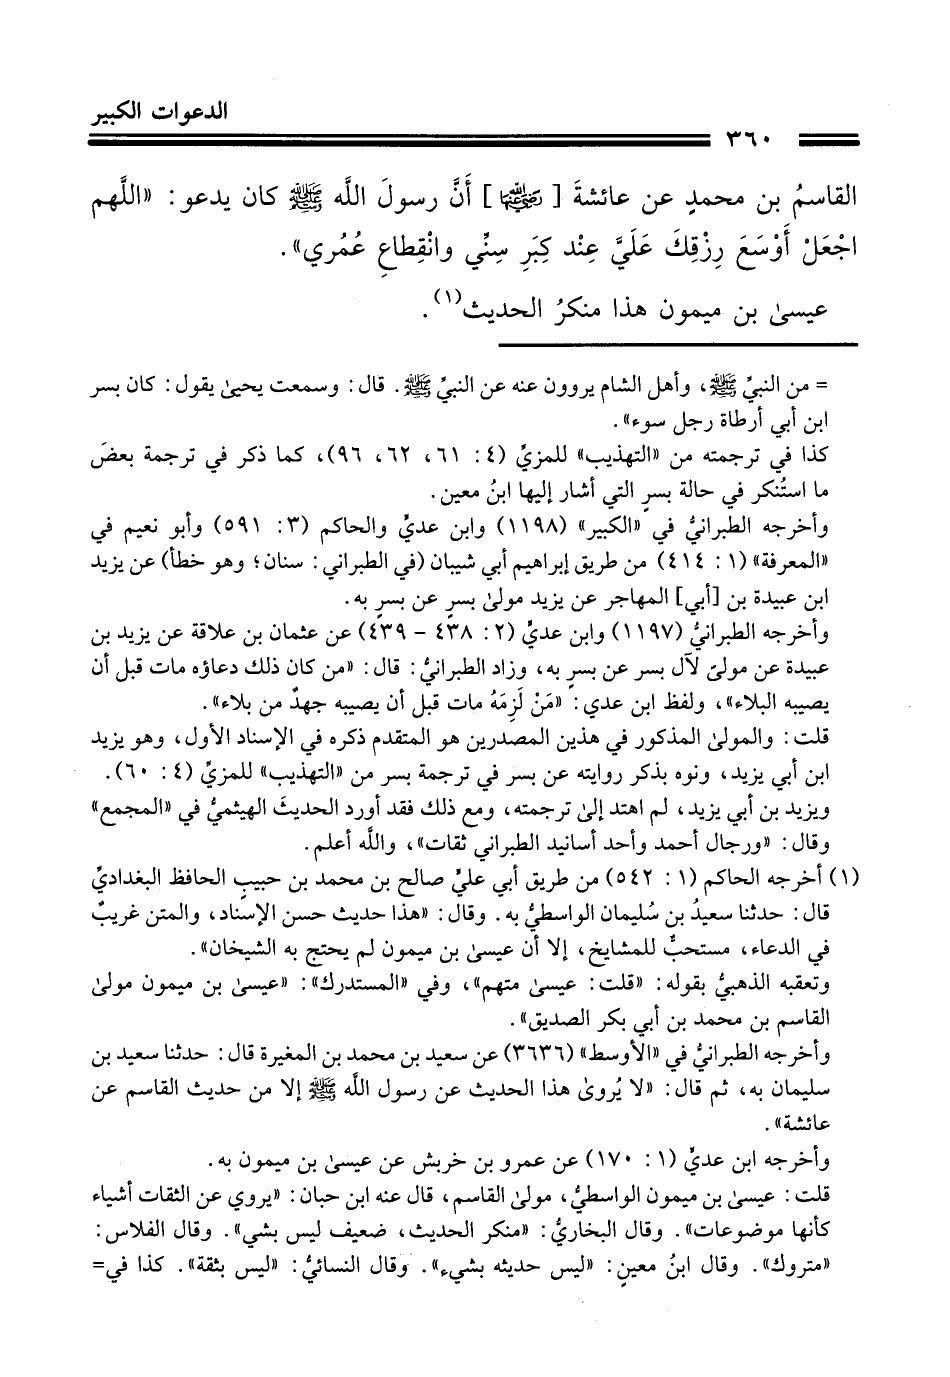 الدعوات الكبير
٣٦٠
القاسمُ بن محمدٍ عن عائشةَ [رضي الله عنها] أَنَّ رسولَ اللَّه ﷺ كان يدعو: «اللَّهم
اجْعَلْ أَوْسَعَ رِزْقِكَ عَلَيَّ عِنْد كِبَرِ سِنِّي وانْقِطاعِ عُمُري».
عيسىٰ بن ميمون هذا منكرُ الحديث(١).
= من النبيِّ ﷺ، وأهل الشام يروون عنه عن النبيِّ ﷺ. قال: وسمعت يحيىٰ يقول: كان بسر
ابن أبي أرطاة رجل سوء».
كذا في ترجمته من «التهذيب» للمزيِّ (٤: ٦١، ٦٢، ٩٦)، كما ذكر في ترجمة بعضَ
ما استُنكر في حالة بسرٍ التي أشار إليها ابنُ معين.
وأخرجه الطبرانيُّ في «الكبير» (١١٩٨) وابن عديٍّ والحاكم (٣: ٥٩١) وأبو نعيم في
«المعرفة» (١: ٤١٤) من طريق إبراهيم أبي شيبان (في الطبراني: سنان؛ وهو خطأ) عن يزيد
ابن عبيدة بن [أبي] المهاجر عن يزيد مولىٰ بسرٍ عن بسرٍ به.
وأخرجه الطبرانيُّ (١١٩٧) وابن عديٍّ (٢: ٤٣٨ - ٤٣٩) عن عثمان بن علاقة عن يزيد بن
عبيدة عن مولىً لآل بسر عن بسرٍ به، وزاد الطبرانيُّ: قال: «من كان ذلك دعاؤه مات قبل أن
يصيبه البلاء»، ولفظ ابن عدي: «مَنْ لَزِمَهُ مات قبل أن يصيبه جهدٌ من بلاء».
قلت: والمولىٰ المذكور في هذين المصدرين هو المتقدم ذكره في الإسناد الأول، وهو يزيد
ابن أبي يزيد، ونوه بذكر روايته عن بسر في ترجمة بسر من «التهذيب» للمزيِّ (٤: ٦٠).
ويزيد بن أبي يزيد، لم اهتد إلىٰ ترجمته، ومع ذلك فقد أورد الحديثَ الهيثميُّ في «المجمع»
وقال: «ورجال أحمد وأحد أسانيد الطبراني ثقات»، واللَّه أعلم.
(١) أخرجه الحاكم (١: ٥٤٢) من طريق أبي عليِّ صالح بن محمد بن حبيبٍ الحافظ البغداديِّ
قال: حدثنا سعيدُ بن سُليمان الواسطيُّ به. وقال: «هذا حديث حسن الإسناد، والمتن غريبٌ
في الدعاء، مستحبٌّ للمشايخ، إلا أن عيسىٰ بن ميمون لم يحتج به الشيخان».
وتعقبه الذهبيُّ بقوله: «قلت: عيسىٰ متهم»، وفي «المستدرك»: «عيسىٰ بن ميمون مولىٰ
القاسم بن محمد بن أبي بكر الصديق».
وأخرجه الطبرانيُّ في «الأوسط» (٣٦٣٦) عن سعيد بن محمد بن المغيرة قال: حدثنا سعيد بن
سليمان به، ثم قال: «لا يُروىٰ هذا الحديث عن رسول اللَّه ﷺ إلا من حديث القاسم عن
عائشة».
وأخرجه ابن عديٍّ (١: ١٧٠) عن عمرو بن خربش عن عيسىٰ بن ميمون به.
قلت: عيسىٰ بن ميمون الواسطيُّ، مولىٰ القاسم، قال عنه ابن حبان: «يروي عن الثقات أشياء
كأنها موضوعات». وقال البخاريُّ: «منكر الحديث، ضعيف ليس بشي». وقال الفلاس:
«متروك». وقال ابنُ معينٍ: «ليس حديثه بشيء». وقال النسائيُّ: «ليس بثقة». كذا في=